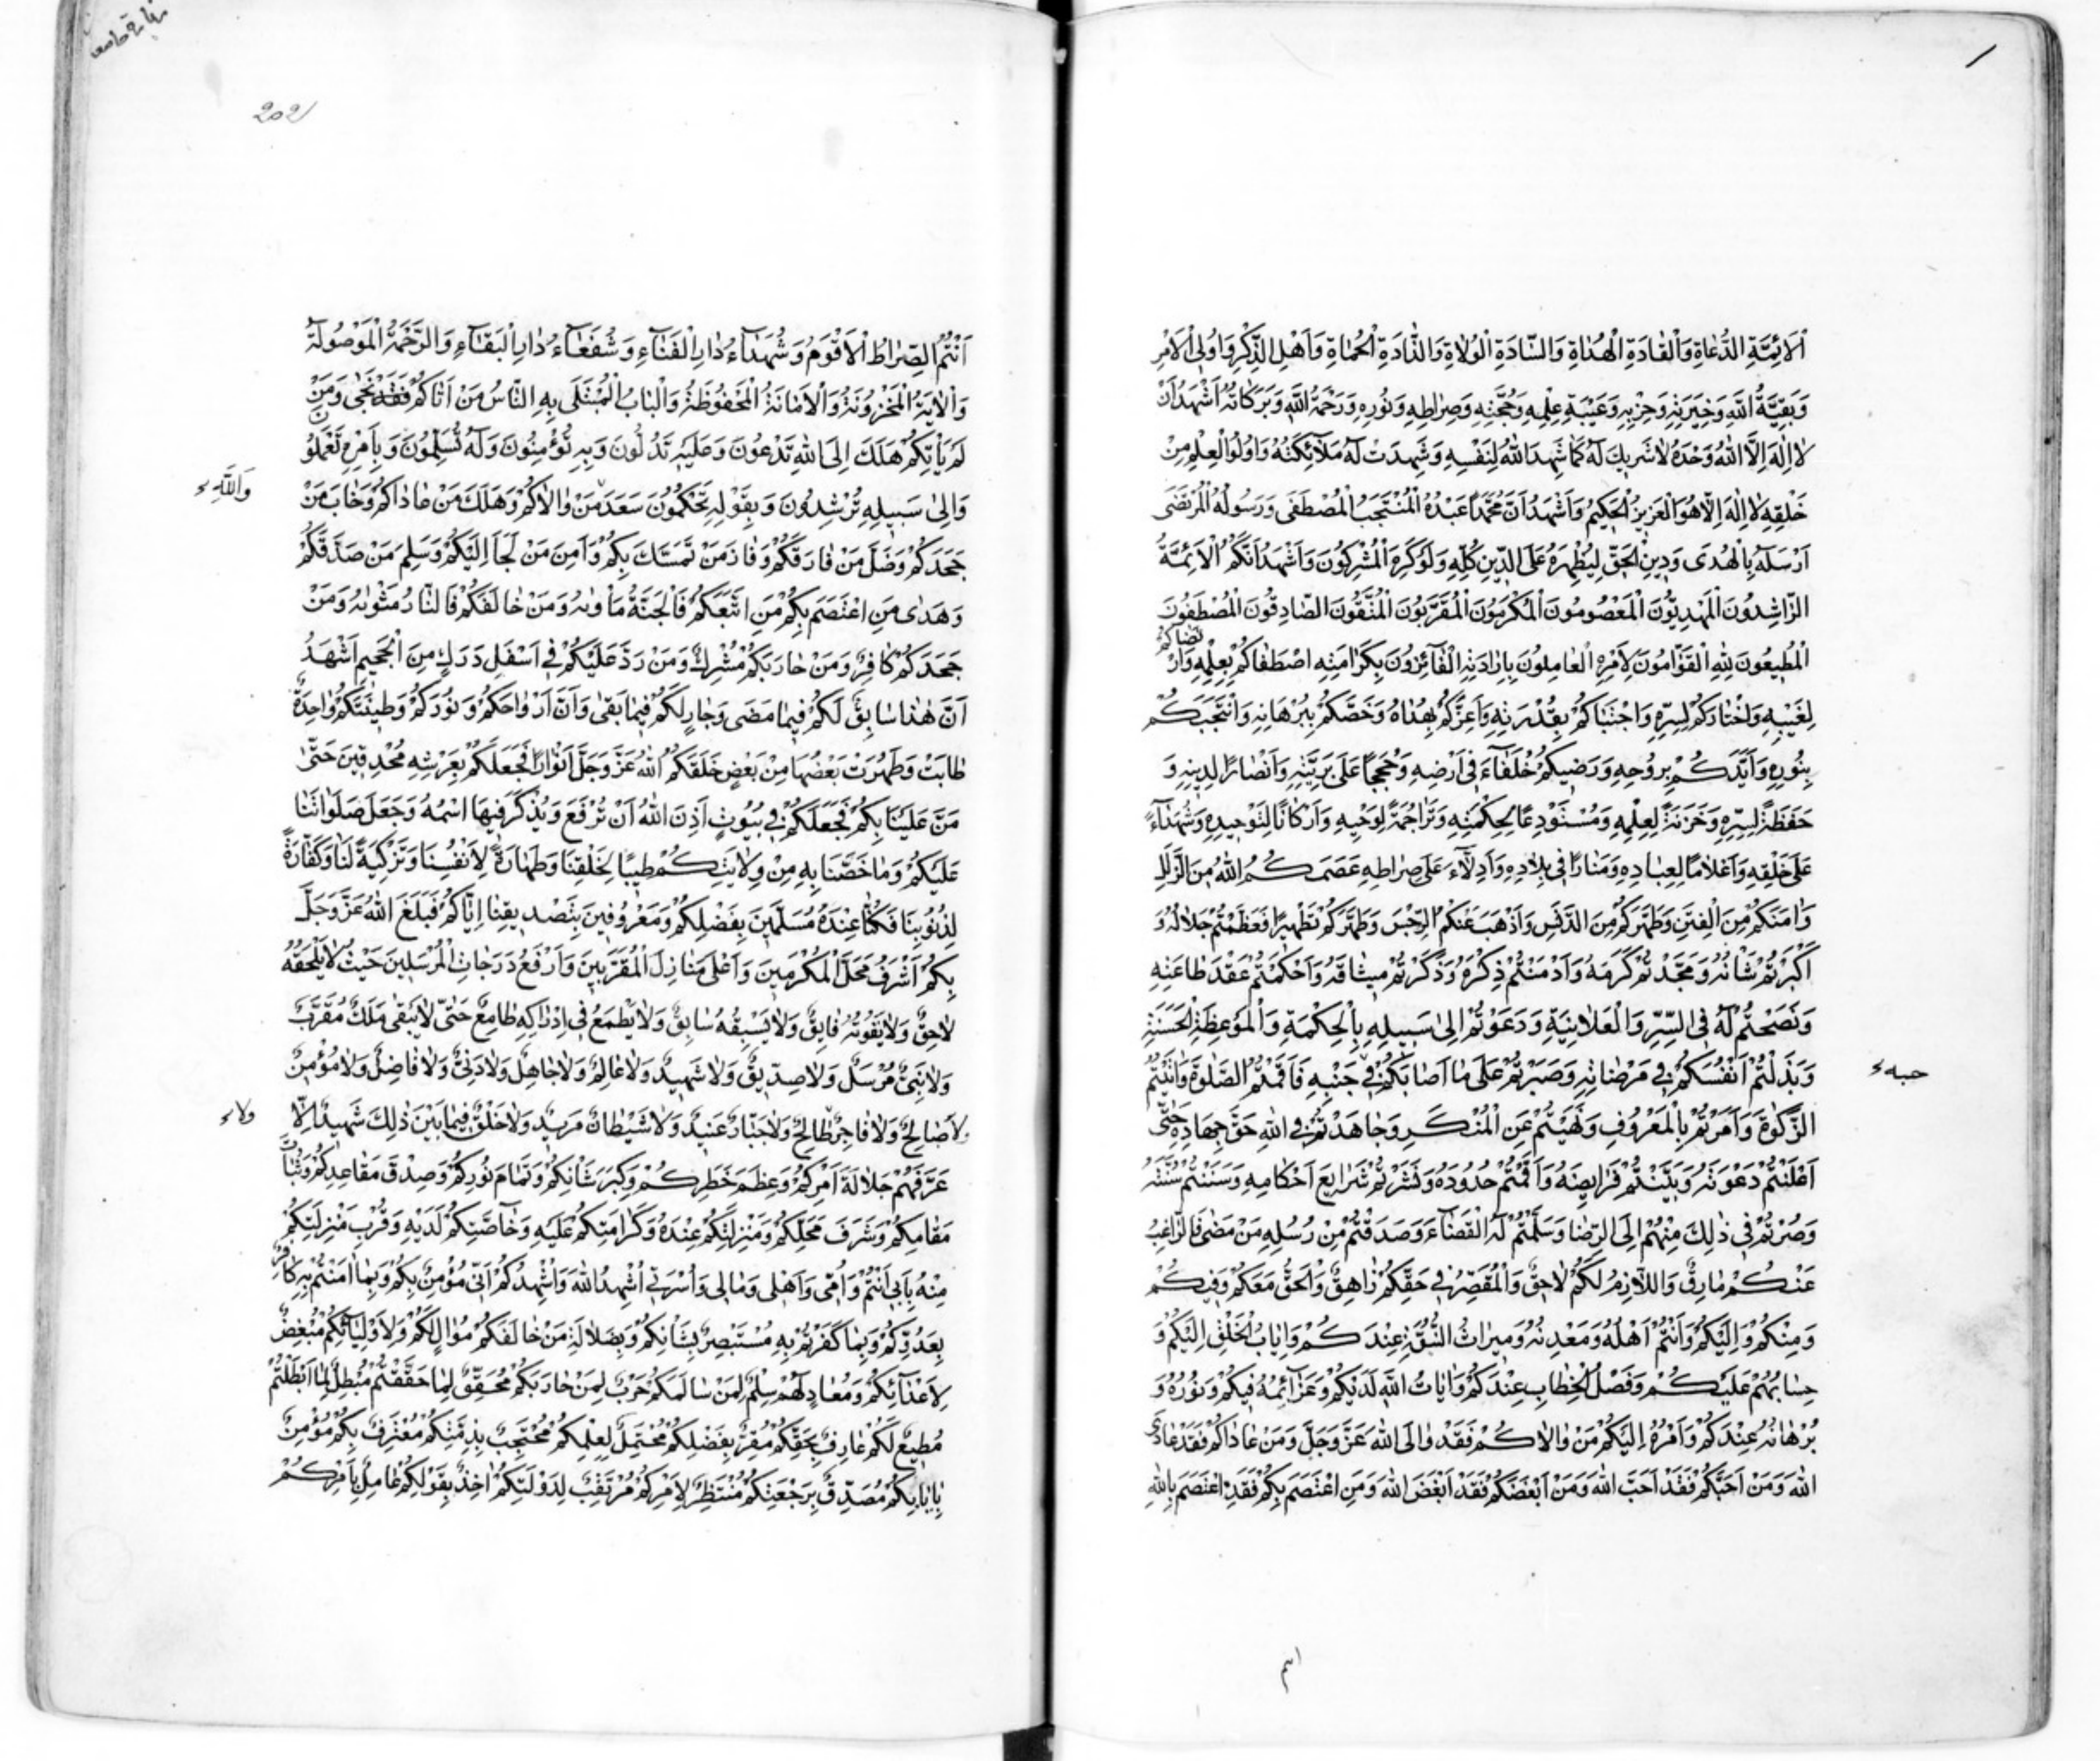 اَلْاَئِمَّةِ الدُّعَاةِ وَالْقَادَةِ الْهُدَاةِ وَالسَّادَةِ الْوُلَاةِ وَالذَّادَةِ الْحُمَاةِ وَاَهْلِ الذِّكْرِ وَاُولِى الْاَمْرِ
وَبَقِيَّةِ اللّٰهِ وَخِيَرَتِهِ وَحِزْبِهِ وَعَيْبَةِ عِلْمِهِ وَحُجَّتِهِ وَصِرَاطِهِ وَنُورِهِ وَرَحْمَةُ اللّٰهِ وَبَرَكَاتُهُ اَشْهَدُ اَنْ
لَا اِلٰهَ اِلَّا اللّٰهُ وَحْدَهُ لَا شَرِيكَ لَهُ كَمَا شَهِدَ اللّٰهُ لِنَفْسِهِ وَشَهِدَتْ لَهُ مَلَآئِكَتُهُ وَاُولُوا الْعِلْمِ مِنْ
خَلْقِهِ لَا اِلٰهَ اِلَّا هُوَ الْعَزِيزُ الْحَكِيمُ وَاَشْهَدُ اَنَّ مُحَمَّدًا عَبْدُهُ الْمُنْتَجَبُ الْمُصْطَفَى وَرَسُولُهُ الْمُرْتَضَى
اَرْسَلَهُ بِالْهُدَى وَدِينِ الْحَقِّ لِيُظْهِرَهُ عَلَى الدِّينِ كُلِّهِ وَلَوْ كَرِهَ الْمُشْرِكُونَ وَاَشْهَدُ اَنَّكُمُ الْاَئِمَّةُ
الرَّاشِدُونَ الْمَهْدِيُّونَ الْمَعْصُومُونَ الْمُكَرَّمُونَ الْمُقَرَّبُونَ الْمُتَّقُونَ الصَّادِقُونَ الْمُصْطَفَوْنَ
الْمُطِيعُونَ لِلّٰهِ الْقَوَّامُونَ لِاَمْرِهِ الْعَامِلُونَ بِاِرَادَتِهِ الْفَآئِزُونَ بِكَرَامَتِهِ اصْطَفَاكُمْ بِعِلْمِهِ وَارْتَضَاكُمْ
لِغَيْبِهِ وَاخْتَارَكُمْ لِسِرِّهِ وَاجْتَبَاكُمْ بِقُدْرَتِهِ وَاَعَزَّكُمْ بِهُدَاهُ وَخَصَّكُمْ بِبُرْهَانِهِ وَانْتَجَبَكُمْ
بِنُورِهِ وَاَيَّدَكُمْ بِرُوحِهِ وَرَضِيَكُمْ خُلَفَآءَ فِى اَرْضِهِ وَحُجَجًا عَلَى بَرِيَّتِهِ وَاَنْصَارًا لِدِينِهِ وَ
حَفَظَةً لِسِرِّهِ وَخَزَنَةً لِعِلْمِهِ وَمُسْتَوْدَعًا لِحِكْمَتِهِ وَتَرَاجِمَةً لِوَحْيِهِ وَاَرْكَانًا لِتَوْحِيدِهِ وَشُهَدَآءً
عَلَى خَلْقِهِ وَاَعْلَامًا لِعِبَادِهِ وَمَنَارًا فِى بِلَادِهِ وَاَدِلَّآءَ عَلَى صِرَاطِهِ عَصَمَكُمُ اللّٰهُ مِنَ الزَّلَلِ
وَاٰمَنَكُمْ مِنَ الْفِتَنِ وَطَهَّرَكُمْ مِنَ الدَّنَسِ وَاَذْهَبَ عَنْكُمُ الرِّجْسَ وَطَهَّرَكُمْ تَطْهِيرًا فَعَظَّمْتُمْ جَلَالَهُ وَ
اَكْبَرْتُمْ شَانَهُ وَمَجَّدْتُمْ كَرَمَهُ وَاَدْمَنْتُمْ ذِكْرَهُ وَذَكَّرْتُمْ مِيثَاقَهُ وَاَحْكَمْتُمْ عَقْدَ طَاعَتِهِ
وَنَصَحْتُمْ لَهُ فِى السِّرِّ وَالْعَلَانِيَةِ وَدَعَوْتُمْ اِلٰى سَبِيلِهِ بِالْحِكْمَةِ وَالْمَوْعِظَةِ الْحَسَنَةِ
وَبَذَلْتُمْ اَنْفُسَكُمْ فِى مَرْضَاتِهِ وَصَبَرْتُمْ عَلَى مَا اَصَابَكُمْ فِى جَنْبِهِ فَاَقَمْتُمُ الصَّلٰوةَ وَاٰتَيْتُمُ
حبه
الزَّكٰوةَ وَاَمَرْتُمْ بِالْمَعْرُوفِ وَنَهَيْتُمْ عَنِ الْمُنْكَرِ وَجَاهَدْتُمْ فِى اللّٰهِ حَقَّ جِهَادِهِ حَتّٰى
اَعْلَنْتُمْ دَعْوَتَهُ وَبَيَّنْتُمْ فَرَايِضَهُ وَاَقَمْتُمْ حُدُودَهُ وَنَشَرْتُمْ شَرَايِعَ اَحْكَامِهِ وَسَنَنْتُمْ سُنَّتَهُ
وَصُرْتُمْ فِى ذٰلِكَ مِنْهُمْ اِلَى الرِّضَا وَسَلَّمْتُمْ لَهُ الْقَضَآءَ وَصَدَّقْتُمْ مِنْ رُسُلِهِ مَنْ مَضٰى فَالرَّاغِبُ
عَنْكُمْ مَارِقٌ وَاللَّازِمُ لَكُمْ لَاحِقٌ وَالْمُقَصِّرُ فِى حَقِّكُمْ زَاهِقٌ وَالْحَقُّ مَعَكُمْ وَفِيكُمْ
وَمِنْكُمْ وَاِلَيْكُمْ وَاَنْتُمْ اَهْلُهُ وَمَعْدِنُهُ وَمِيرَاثُ النُّبُوَّةِ عِنْدَكُمْ وَاِيَابُ الْخَلْقِ اِلَيْكُمْ وَ
حِسَابُهُمْ عَلَيْكُمْ وَفَصْلُ الْخِطَابِ عِنْدَكُمْ وَاٰيَاتُ اللّٰهِ لَدَيْكُمْ وَعَزَآئِمُهُ فِيكُمْ وَنُورُهُ وَ
بُرْهَانُهُ عِنْدَكُمْ وَاَمْرُهُ اِلَيْكُمْ مَنْ وَالَاكُمْ فَقَدْ وَالَى اللّٰهَ عَزَّ وَجَلَّ وَمَنْ عَادَاكُمْ فَقَدْ عَادَى
اللّٰهَ وَمَنْ اَحَبَّكُمْ فَقَدْ اَحَبَّ اللّٰهَ وَمَنْ اَبْغَضَكُمْ فَقَدْ اَبْغَضَ اللّٰهَ وَمَنِ اعْتَصَمَ بِكُمْ فَقَدِ اعْتَصَمَ بِاللّٰهِ
202
اَنْتُمُ الصِّرَاطُ الْاَقْوَمُ وَشُهَدَآءُ دَارِ الْفَنَآءِ وَشُفَعَآءُ دَارِ الْبَقَآءِ وَالرَّحْمَةُ الْمَوْصُولَةُ
وَالْاٰيَةُ الْمَخْزُونَةُ وَالْاَمَانَةُ الْمَحْفُوظَةُ وَالْبَابُ الْمُبْتَلَى بِهِ النَّاسُ مَنْ اَتَاكُمْ فَقَدْ نَجٰى وَمَنْ
لَمْ يَاْتِكُمْ هَلَكَ اِلَى اللّٰهِ تَدْعُونَ وَعَلَيْهِ تَدُلُّونَ وَبِهِ تُؤْمِنُونَ وَلَهُ تُسَلِّمُونَ وَبِاَمْرِهِ تَعْمَلُونَ
وَاِلٰى سَبِيلِهِ تُرْشِدُونَ وَبِقَوْلِهِ تَحْكُمُونَ سَعَدَ مَنْ وَالَاكُمْ وَهَلَكَ مَنْ عَادَاكُمْ وَخَابَ مَنْ
وَاللّٰهِ
جَحَدَكُمْ وَضَلَّ مَنْ فَارَقَكُمْ وَفَازَ مَنْ تَمَسَّكَ بِكُمْ وَاٰمِنَ مَنْ لَجَاَ اِلَيْكُمْ وَسَلِمَ مَنْ صَدَّقَكُمْ
وَهَدٰى مَنِ اعْتَصَمَ بِكُمْ مَنِ اتَّبَعَكُمْ فَالْجَنَّةُ مَاْوٰيهُ وَمَنْ خَالَفَكُمْ فَالنَّارُ مَثْوٰيهُ وَمَنْ
جَحَدَكُمْ كَافِرٌ وَمَنْ حَارَبَكُمْ مُشْرِكٌ وَمَنْ رَدَّ عَلَيْكُمْ فِى اَسْفَلِ دَرَكٍ مِنَ الْجَحِيمِ اَشْهَدُ
اَنَّ هٰذَا سَابِقٌ لَكُمْ فِيمَا مَضَى وَجَارٍ لَكُمْ فِيمَا بَقِىَ وَاَنَّ اَرْوَاحَكُمْ وَنُورَكُمْ وَطِينَتَكُمْ وَاحِدَةٌ
طَابَتْ وَطَهُرَتْ بَعْضُهَا مِنْ بَعْضٍ خَلَقَكُمُ اللّٰهُ عَزَّ وَجَلَّ اَنْوَارًا فَجَعَلَكُمْ بِعَرْشِهِ مُحْدِقِينَ حَتّٰى
مَنَّ عَلَيْنَا بِكُمْ فَجَعَلَكُمْ فِى بُيُوتٍ اَذِنَ اللّٰهُ اَنْ تُرْفَعَ وَيُذْكَرَ فِيهَا اسْمُهُ وَجَعَلَ صَلَوَاتَنَا
عَلَيْكُمْ وَمَا خَصَّنَا بِهِ مِنْ وِلَايَتِكُمْ طِيبًا لِخَلْقِنَا وَطَهَارَةً لِاَنْفُسِنَا وَتَزْكِيَةً لَنَا وَكَفَّارَةً
لِذُنُوبِنَا فَكُنَّا عِنْدَهُ مُسَلِّمِينَ بِفَضْلِكُمْ وَمَعْرُوفِينَ بِتَصْدِيقِنَا اِيَّاكُمْ فَبَلَغَ اللّٰهُ عَزَّ وَجَلَّ
بِكُمْ اَشْرَفَ مَحَلِّ الْمُكَرَّمِينَ وَاَعْلَى مَنَازِلِ الْمُقَرَّبِينَ وَاَرْفَعَ دَرَجَاتِ الْمُرْسَلِينَ حَيْثُ لَا يَلْحَقُهُ
لَاحِقٌ وَلَا يَفُوتُهُ فَايِقٌ وَلَا يَسْبِقُهُ سَابِقٌ وَلَا يَطْمَعُ فِى اِدْرَاكِهِ طَامِعٌ حَتّٰى لَا يَبْقٰى مَلَكٌ مُقَرَّبٌ
وَلَا نَبِىٌّ مُرْسَلٌ وَلَا صِدِّيقٌ وَلَا شَهِيدٌ وَلَا عَالِمٌ وَلَا جَاهِلٌ وَلَا دَنِىٌّ وَلَا فَاضِلٌ وَلَا مُؤْمِنٌ
وَلَا صَالِحٌ وَلَا فَاجِرٌ طَالِحٌ وَلَا جَبَّارٌ عَنِيدٌ وَلَا شَيْطَانٌ مَرِيدٌ وَلَا خَلْقٌ فِيمَا بَيْنَ ذٰلِكَ شَهِيدٌ اِلَّا
ولا
عَرَّفَهُمْ جَلَالَةَ اَمْرِكُمْ وَعِظَمَ خَطَرِكُمْ وَكِبَرَ شَاْنِكُمْ وَتَمَامَ نُورِكُمْ وَصِدْقَ مَقَاعِدِكُمْ وَثَبَاتَ
مَقَامِكُمْ وَشَرَفَ مَحَلِّكُمْ وَمَنْزِلَتِكُمْ عِنْدَهُ وَكَرَامَتِكُمْ عَلَيْهِ وَخَاصَّتِكُمْ لَدَيْهِ وَقُرْبَ مَنْزِلَتِكُمْ
مِنْهُ بِاَبِى اَنْتُمْ وَاُمِّى وَاَهْلِى وَمَالِى وَاُسْرَتِى اُشْهِدُ اللّٰهَ وَاُشْهِدُكُمْ اَنِّى مُؤْمِنٌ بِكُمْ وَبِمَا اٰمَنْتُمْ بِهِ كَافِرٌ
بِعَدُوِّكُمْ وَبِمَا كَفَرْتُمْ بِهِ مُسْتَبْصِرٌ بِشَاْنِكُمْ وَبِضَلَالَةِ مَنْ خَالَفَكُمْ مُوَالٍ لَكُمْ وَلِاَوْلِيَآئِكُمْ مُبْغِضٌ
لِاَعْدَآئِكُمْ وَمُعَادٍ لَهُمْ سِلْمٌ لِمَنْ سَالَمَكُمْ حَرْبٌ لِمَنْ حَارَبَكُمْ مُحَقِّقٌ لِمَا حَقَّقْتُمْ مُبْطِلٌ لِمَا اَبْطَلْتُمْ
مُطِيعٌ لَكُمْ عَارِفٌ بِحَقِّكُمْ مُقِرٌّ بِفَضْلِكُمْ مُحْتَمِلٌ لِعِلْمِكُمْ مُحْتَجِبٌ بِذِمَّتِكُمْ مُعْتَرِفٌ بِكُمْ مُؤْمِنٌ
بِاِيَابِكُمْ مُصَدِّقٌ بِرَجْعَتِكُمْ مُنْتَظِرٌ لِاَمْرِكُمْ مُرْتَقِبٌ لِدَوْلَتِكُمْ اٰخِذٌ بِقَوْلِكُمْ عَامِلٌ بِاَمْرِكُمْ